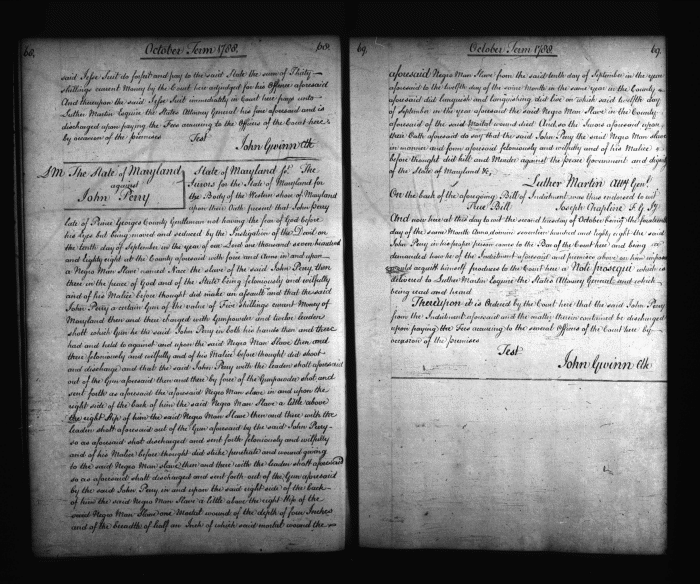 68.
October Term 1788.
68.
said Jesse Suit do forfeit and pay to the said State the sum of Thirty
shillings current Money by the Court here adjudged for his Offence aforesaid
And thereupon the said Jesse Suit immediately in Court here pays unto
Luther Martin Esquire the States Attorney General his fine aforesaid and is
discharged upon paying the Fees accruing to the Officers of the Court here
by occasion of the premises
Test
John Gwinn Clk
The State of Maryland
against
John Perry
State of Maryland sc. The
Jurors for the State of Maryland for
the Body of the Western shore of Maryland
upon their Oath present that John Perry
late of Prince Georges County Gentleman not having the fear of God before
his Eyes but being moved and seduced by the Instigation of the Devil on
the tenth day of September in the year of our Lord one thousand seven hundred
and eighty eight at the County aforesaid with force and Arms in and upon
a Negro Man Slave named Nace the slave of the said John Perry then
there in the peace of God and of the State being feloniously and wilfully
and of his Malice before thought did make an assault and that the said
John Perry a certain Gun of the value of Five Shillings current Money of
Maryland then and there charged with Gunpowder and twelve leaden
shott which Gun he the said John Perry in both his hands then and there
had and held to against and upon the said Negro Man Slave then and
there feloniously and wilfully and of his Malice before thought did shoot
and discharge and that the said John Perry with the leaden shott aforesaid
out of the Gun aforesaid then and there by force of the Gunpowder shot and
sent forth as aforesaid the aforesaid Negro Man slave in and upon the
right side of the back of him the said Negro Man Slave a little above
the right Hip of him the said Negro Man Slave then and there with the
leaden shott aforesaid out of the Gun aforesaid by the said John Perry
so as aforesaid shot discharged and sent forth feloniously and wilfully
and of his Malice before thought did strike penetrate and wound giving
to the said Negro Man slave then and there with the leaden shott aforesaid
so as aforesaid shott discharged and sent forth out of the Gun aforesaid
by the said John Perry in and upon the said right side of the back
of him the said Negro Man Slave a little above the right Hip of the
said Negro Man Slave one Mortal wound of the depth of four Inches
and of the breadth of half an Inch of which said mortal wound the
69.
October Term 1788.
69.
aforesaid Negro Man Slave from the said tenth day of September in the year
aforesaid to the twelfth day of the same Month in the same year in the County
aforesaid did languish and languishing did live on which said twelfth day
of September in the year aforesaid the said Negro Man Slave in the County
aforesaid of the said Mortal wound died And so the Jurors aforesaid upon
their Oath aforesaid do say that the said John Perry the said Negro Man Slave
in manner and form aforesaid feloniously and wilfully and of his Malice
before thought did kill and Murder against the peace Government and dignity
of the State of Maryland &c.
Luther Martin Atty Genl.
On the back of the aforegoing Bill of Indictment was thus endorsed to wit
True Bill
Joseph Chapline F. G. J.
And now here at this day to wit the second Tuesday of October being the fourteenth
day of the same Month Anno domini seventeen hundred and eighty eight the said
John Perry in his proper person comes to the Bar of the Court here and being
demanded how he of the Indictment aforesaid and premises above on him imposed
would acquit himself produces to the Court here a Noli prosequi which is
delivered to Luther Martin Esquire the States Attorney General and which
being read and heard
Thereupon it is Ordered by the Court here that the said John Perry
from the Indictment aforesaid and the matters therein contained be discharged
upon paying the Fees accruing to the several Officers of the Court here by
occasion of the premises
Test
John Gwinn Clk